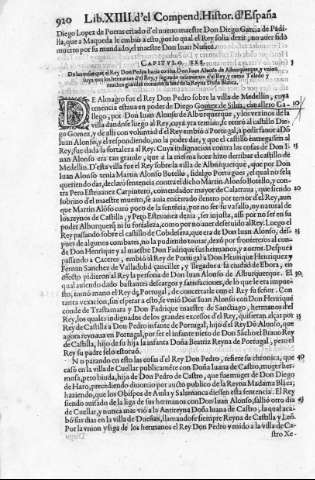 920 Lib. XIIII. d'el Compend. Histor. d'España
Diego Lopez de Porras criado d'el nueuo maestre Don Diego Garcia de Padi-
lla, que a Maqueda le embio a esto, por lo qual el Rey solia dezir, no auer sido
muerto por su mandado, el maestre Don Iuan Nuñez.
CAPITVLO XXX.
De las que el Rey Don Pedro hazia contra Don Iuan Alonso de Alburquerque, y
suya con los hermanos d'el Rey, y d'el Rey, y como Toledo y
muchos grandes la Reyna Doña Blanca.
DE Almagro fue el Rey Don Pedro sobre la villa de Medellin, cuya
tenencia estaua en poder de Diego Gomez de Silua, cauallero Ga-
llego, por Don Iuan Alonso de Alburquerque, y los vezinos de la
villa dandose luego al Rey, cuya era, se retiro al castillo Diego
Gomez, y de alli con voluntad d'el Rey embio a Portogal, a pedir fauor a Don
Iuan Alonso, y el respondiendo, no la poder dar, y que el castillo entregasse al
Rey, fue dada la fortaleza al Rey. Cuya indignacion contra las cosas de Don I-
uan Alonso era tan grande, que a la mesma hora hizo derribar el castillo de
Medellin. D'esta villa fue el Rey sobre la villa de Alburquerque, que por Don
Iuan Alonso tenia Martin Alonso Botello, fidalgo Portogues, el qual no se la
queriendo dar, declaro sentencia contra el dicho Martin Alonso Botello, y con-
tra Pero Esteuanez Carpintero, comendador mayor de Calatraua, que siendo
sobrino d'el maestre muerto, se auia recogido dentro por temor d'el Rey, aun
que Martin Alonso curo poco de la sentencia, por no ser su vassallo, ny natural de
los reynos de Castilla, y Pero Esteuanez dezia, ser injusta, assi por no ser en su
poder Alburquerque ni la fortaleza, como por no auer desseruido al Rey. Luego el
Rey passando sobre el castillo de Cobdesera, que era de Don Iuan Alonso, des-
pues de algunos combates, no la pudiendo tomar, dexo por fronteros al con-
de Don Henrique y al maestre Don Fadrique sus hermanos, y a otros. Despues
passando a Caceres, embio el Rey de Portogal a Don Henrique Henriquez y
Fernan Sanchez de Valladolid canciller, y llegados a la ciudad de Ebora, en
efecto pidieron al Rey la persona de Don Iuan Alonso de Alburquerque. El
qual auiendo dado bastantes descargos y satisfaciones, de lo que le era impue-
sto, torno mano el Rey de Portogal, de concertarle con el Rey su señor. Con
tanta vexacion, sin esperar a esto, se vnio Don Iuan Alonso con Don Henrique
conde de Trastamara y Don Fadrique maestre de Sanctiago, hermanos d'el
Rey, los quales indignados de los grandes excessos d'el Rey, quisieron alçar por
Rey de Castilla a Don Pedro infante de Portogal, hijo d'el Rey Don Alonso, que
agora reynaua en Portogal, por ser el infante nieto de Don Sancho el Brauo Rey
de Castilla, hijo de su hija la infanta Doña Beatriz Reyna de Portogal, pero el
Rey su padre se lo estoruo.
No parando en esto las cosas d'el Rey Don Pedro, refiere su chronica, que
caso en la villa de Cuellar publicamente con Doña Iuana de Castro, muger her-
mosa, pero biuda, hija de Don Pedro de Castro, que fue muger de Don Diego
de Haro, precediendo diuorcio por aucto publico de la Reyna Madama Blanca,
haziendo, que los Obispos de Auila y Salamanca diessen esta sentencia. El Rey
siendo auisado de la liga de sus hermanos con Don Iuan Alonso, salio otro dia
de Cuellar, y nunca mas vio a la Reyna Doña Iuana de Castro, la qual aca-
bo sus dias en la villa de Dueñas, llamandose siempre Reyna de Castilla y Leon.
Por la vnion y liga de los hermanos el Rey Don Pedro venido a la villa de Ca-
stro Xe-